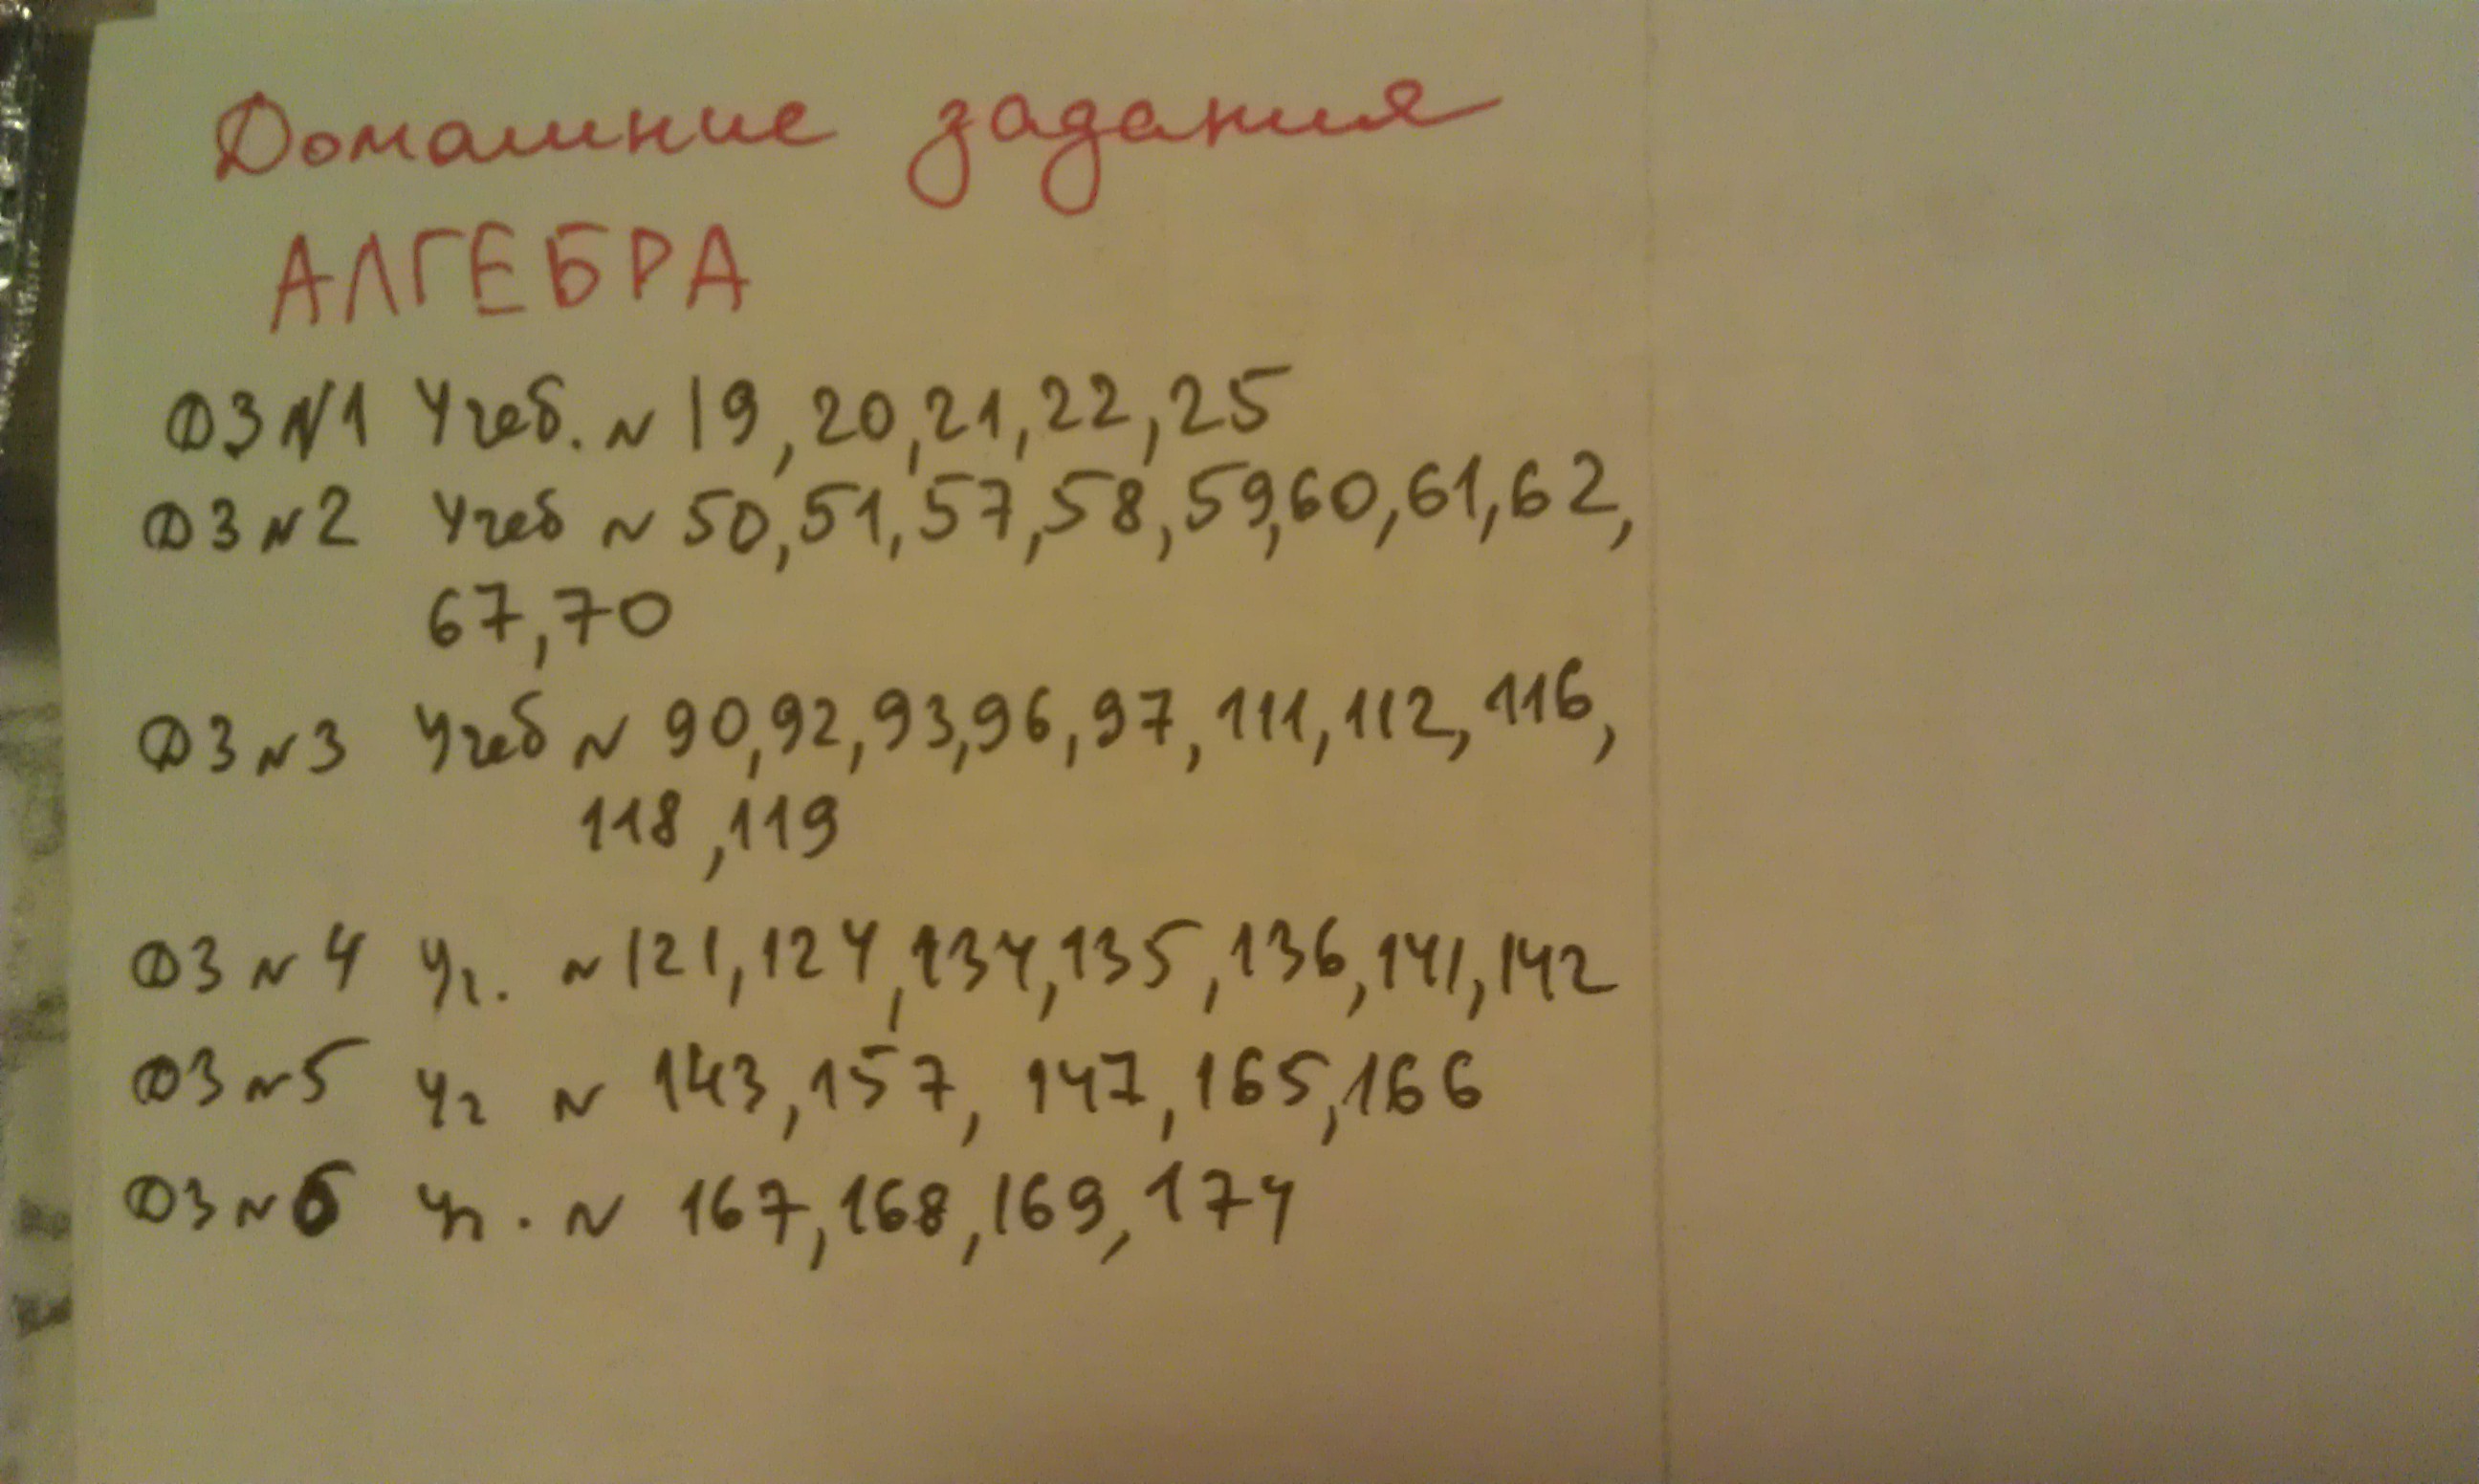 Домашние задания
АЛГЕБРА
ДЗ N1 Учеб. N 19, 20, 21, 22, 25
ДЗ N2 Учеб N 50, 51, 57, 58, 59, 60, 61, 62,
67, 70
ДЗ N3 Учеб N 90, 92, 93, 96, 97, 111, 112, 116,
118, 119
ДЗ N4 Уч. N 121, 124, 134, 135, 136, 141, 142
ДЗ N5 Уч N 143, 157, 147, 165, 166
ДЗ N6 Уч. N 167, 168, 169, 174